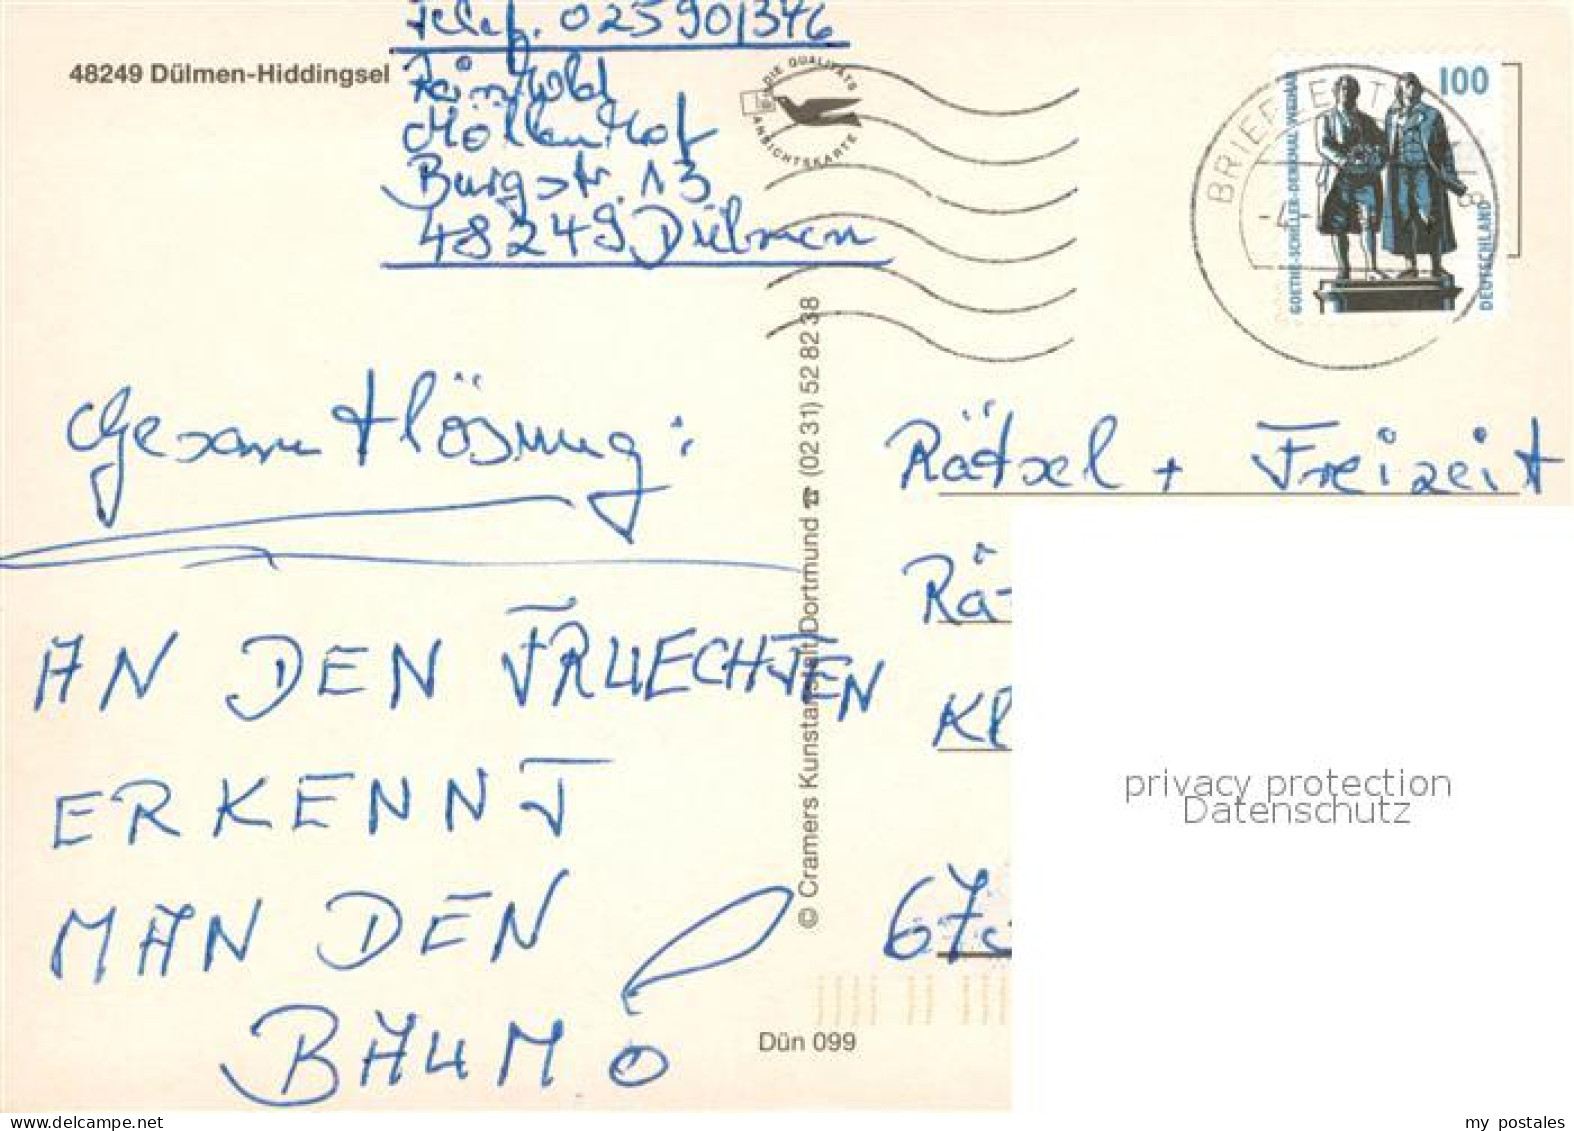 Telef. 02590/346
48249 Dülmen-Hiddingsel
Reinhold
Möllenhof
Burgstr. 13
48249 Dülmen
DIE QUALITÄTS
ANSICHTSKARTE
BRIEFZENT
-4.-
8
100
GOETHE-SCHILLER-DENKMAL WEIMAR
DEUTSCHLAND
Gesamtlösung:
AN DEN FRUECHTEN
ERKENNT
MAN DEN
BAUM!
© Cramers Kunstanstalt, Dortmund ☎ (02 31) 52 82 38
Dün 099
Rätsel + Freizeit
Rä
Kl
67
privacy protection
Datenschutz
delcampe.net
my postales